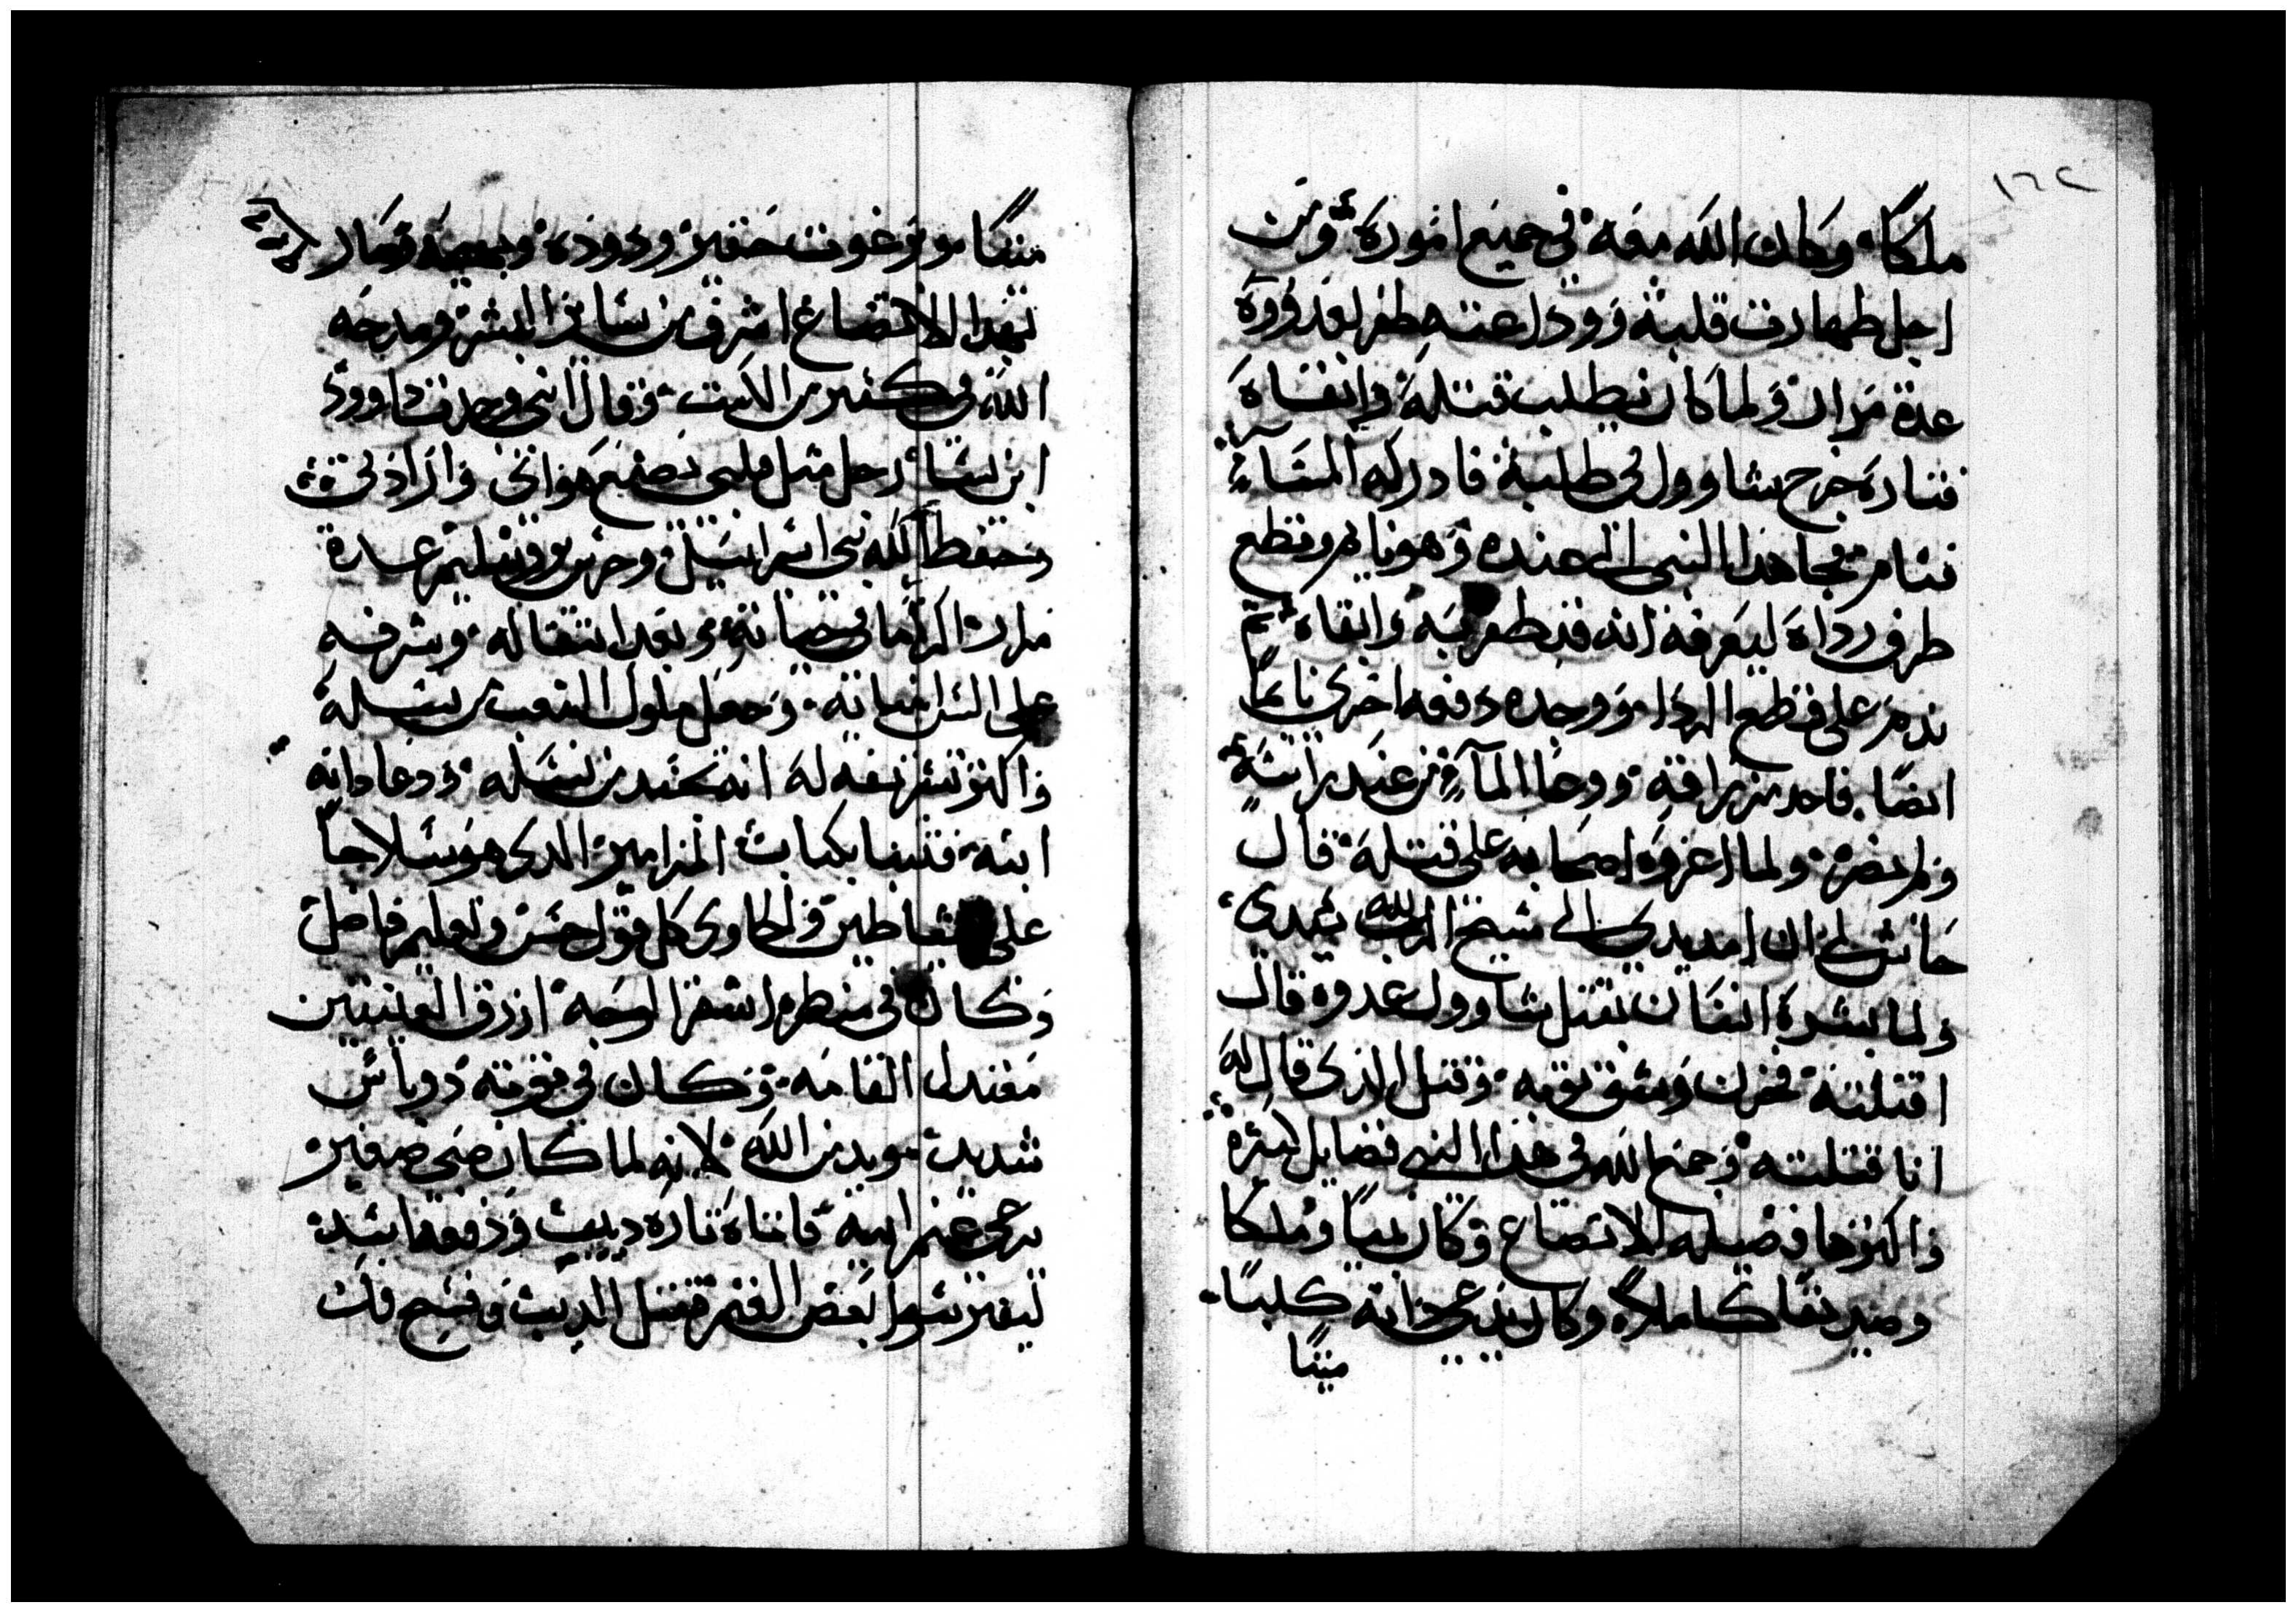 ١٦٢
ملكًا وكان الله معه في جميع امورة ومن
اجل طهارت قلبه ووداعته ظفر بعدووة
عدة مرار ولما كان يطلب قتله وابقاة
فتارة خرج شاوول في طلبة فادركه المسآء
فنام فجا هذا النبي الي عنده وهو نايم وقطع
طرف رداة ليعرفه انه قد ظفر به وابقاة ثم
ندم علي قطع الردا ووجده دفعه اخري نايمًا
ايضا فاخد مزراقه ووعا المآء من عند راسة
ولم يضره ولما اغروة اصحابه علي قتلة قال
حاش لي ان امد يدي الي مسيح الرب الله سيدي
ولما بشرة انسان بقتل شاوول عدوه قال
اقتلته فحزن وشق ثوبه وقتل الذي قال له
انا قتلته وجمع الله في هذا النبي فضايل كثيرة
واكثرها فضيله الاتضاع وكان نبيًا وملكًا
وصديقًا كاملا وكان يدعي ذاته كلبًا
ميتًا
ميتًا وبرغوت حقير ودوده وبهيمه وصار
بهدا الاتضاع اشرف من سائر البشر ومدحه
الله في كثير من الكتب وقال اني وجدت داوود
ابن يسا رجل مثل قلبي يصنع هواتي وارادتي
وحفظ الله بني اسرائيل وحرس اورشليم عدة
مرار اكراما في حياته وبعد انتقاله وشرفه
علي وجعل ملوك الشعب من نسله
واكثر تشريفه له انه تجسد من نسله ودعا داته
ابنه فتنبا بكتاب المزامير الدي هو سلاحا
علي الشياطين والحاوي كل قول حسن وتعليم فاضل
وكان في منظره اشقر الوجه ازرق العينين
معتدل القامه وكان في قوته دو باس
شديد مويد من الله لانه لما كان صبي صغير
يرعي غنم ابيه فاتاة تارة ديب ودفعه اسد
ليفترسوا بعض الغنم فقتل الديب وفسخ فك